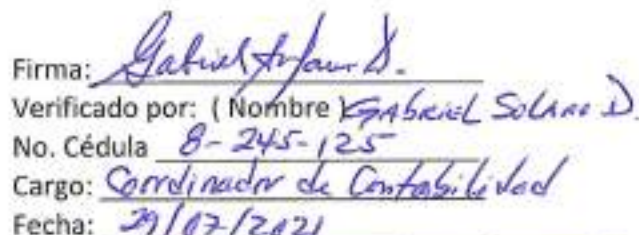 Firma: Gabriel D.
Verificado por: ( Nombre ) GABRIEL SOLANO D.
No. Cédula 8-245-125
Cargo: Coordinador de Contabilidad
Fecha: 29/07/2021